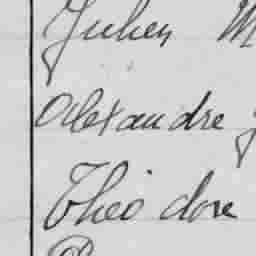 Julien M
Alexandre J
Théodore